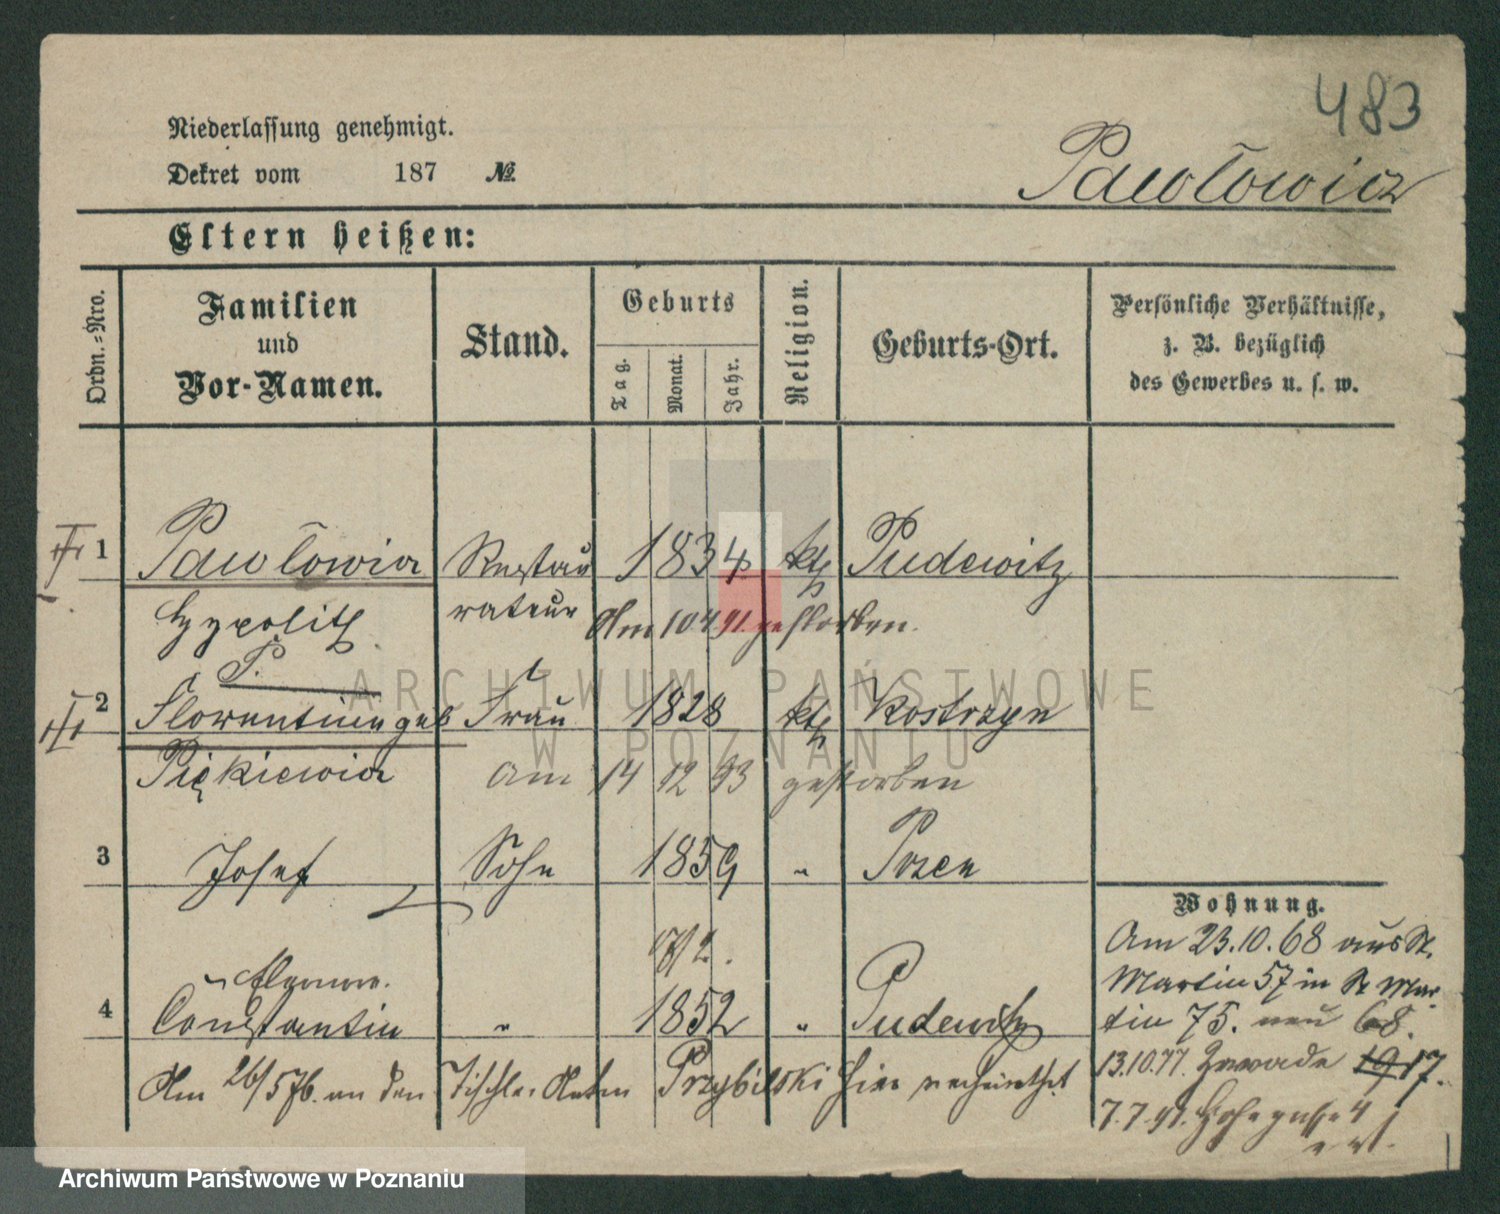 483
Niederlassung genehmigt.
Dekret vom 187 №.
Pawłowicz
Eltern heißen:
Ordn.-Nro.
Familien
und
Vor-Namen.
Stand.
Geburts
Tag.
Monat.
Jahr.
Religion.
Geburts-Ort.
Persönliche Verhältnisse,
z. B. bezüglich
des Gewerbes u. s. w.
1 Pawłowicz Restau 1834 kth Pudewitz
Hypolith rateur Am 10 4 91. gestorben.
P.
2 Florentine geb Frau 1828 kth Kostrzyn
Piękiewicz am 14 12 93 gestorben
3 Josef Sohn 1859 " Posen
Wohnung.
Am 23.10.68 aus St.
Martin 57 in St Mar
tin 75. neu 68.
17/2.
4 Constantin " 1852 " Pudewitz
13.10.77. Zawade 19 17.
Am 26/5 76. an den Tischler Anton Przybilski hier verheirathet
7.7.91. 4
ARCHIWUM PAŃSTWOWE
W POZNANIU
Archiwum Państwowe w Poznaniu